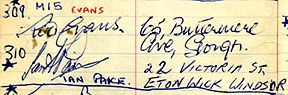 309 M15 EVANS
Evans. 63 Buttermere
Ave, Slough.
310 22 VICTORIA ST,
IAN PAICE. ETON WICK WINDSOR